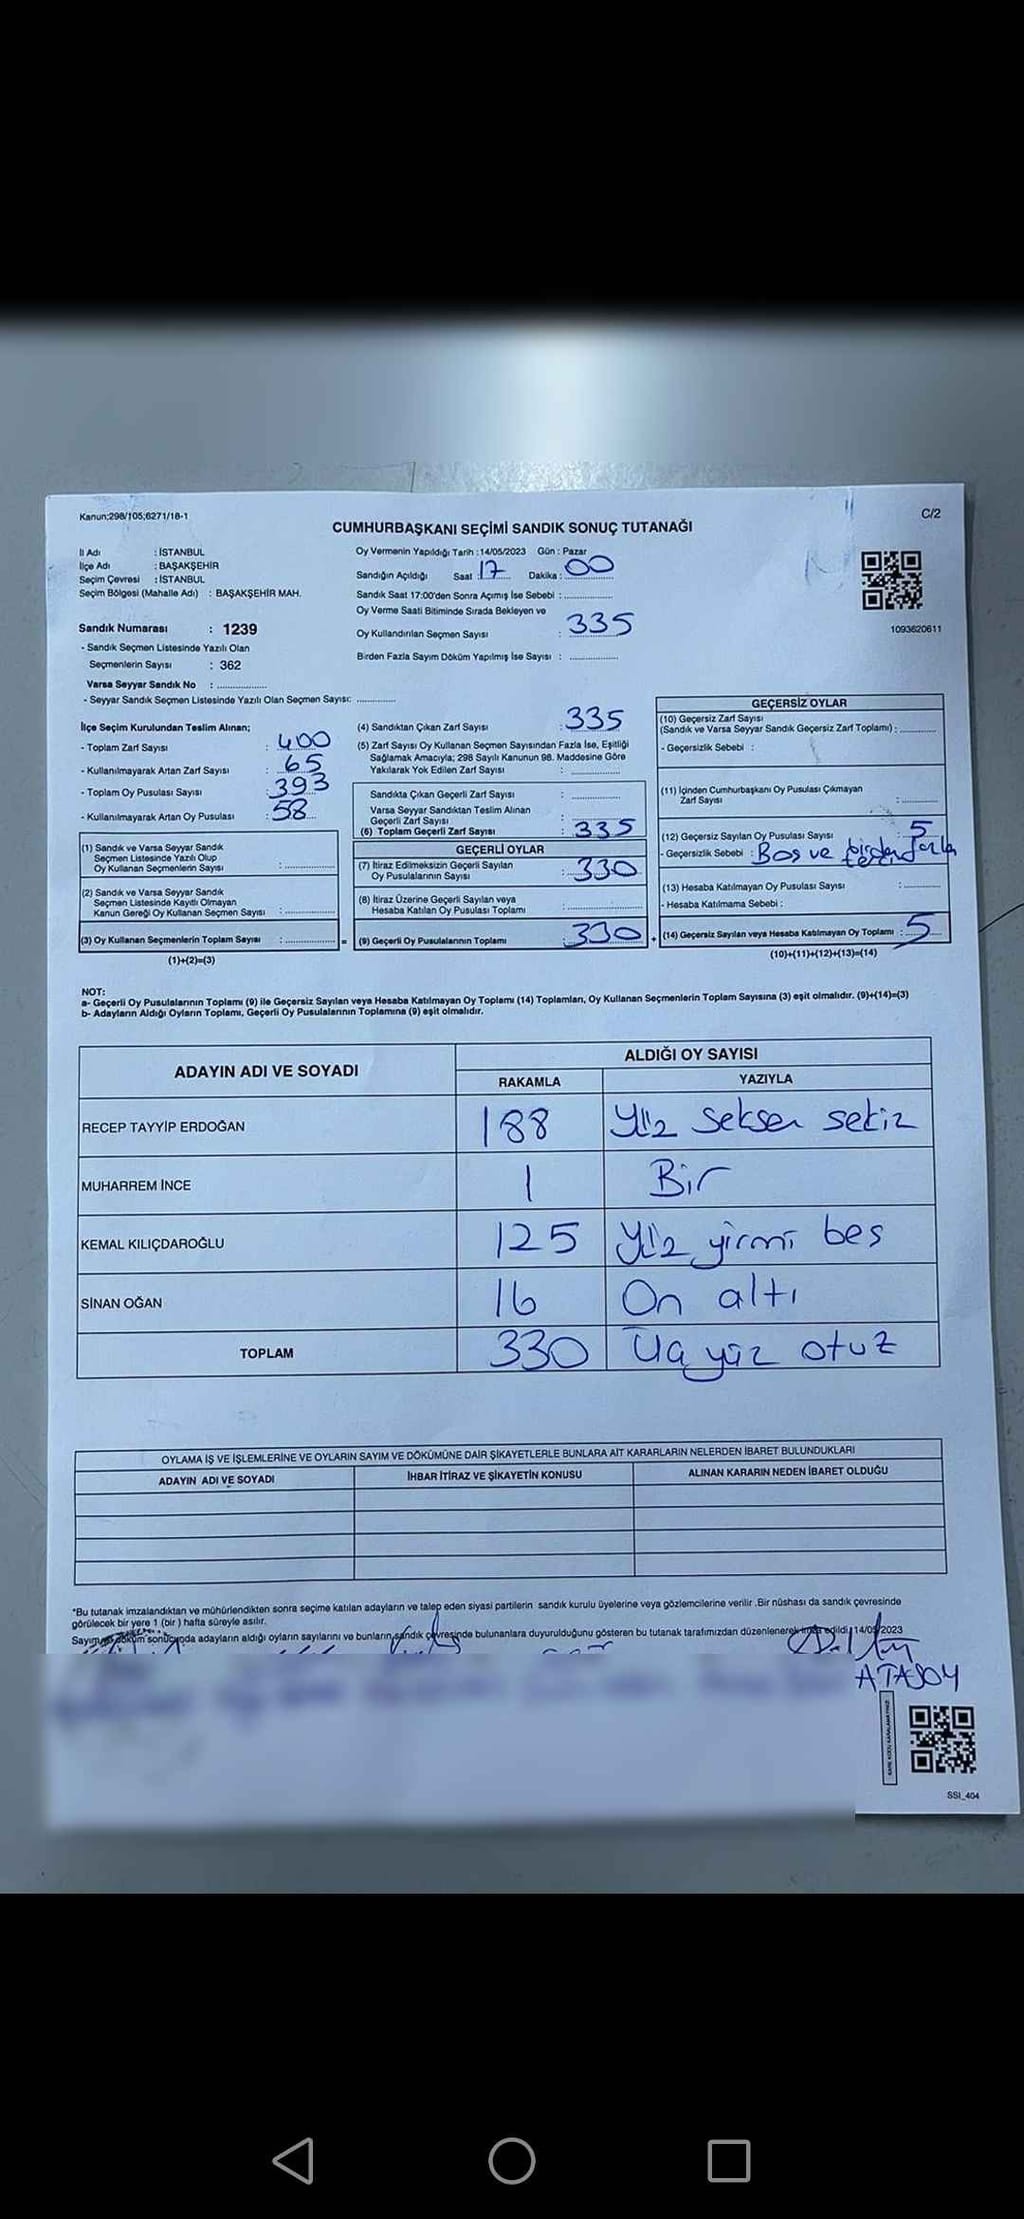 Kanun;298/105;6271/18-1
C/2
CUMHURBAŞKANI SEÇİMİ SANDIK SONUÇ TUTANAĞI
İl Adı : İSTANBUL
İlçe Adı : BAŞAKŞEHİR
Seçim Çevresi : İSTANBUL
Seçim Bölgesi (Mahalle Adı) : BAŞAKŞEHİR MAH.
Oy Vermenin Yapıldığı Tarih : 14/05/2023 Gün : Pazar
Sandığın Açıldığı Saat : 17 Dakika : 00
Sandık Saat 17:00'den Sonra Açımış İse Sebebi :
Oy Verme Saati Bitiminde Sırada Bekleyen ve
Oy Kullandırılan Seçmen Sayısı : 335
Birden Fazla Sayım Döküm Yapılmış İse Sayısı :
1093620611
Sandık Numarası : 1239
- Sandık Seçmen Listesinde Yazılı Olan
Seçmenlerin Sayısı : 362
Varsa Seyyar Sandık No :
- Seyyar Sandık Seçmen Listesinde Yazılı Olan Seçmen Sayısı:
İlçe Seçim Kurulundan Teslim Alınan;
- Toplam Zarf Sayısı : 400
- Kullanılmayarak Artan Zarf Sayısı : 65
- Toplam Oy Pusulası Sayısı : 393
- Kullanılmayarak Artan Oy Pusulası : 58
(1) Sandık ve Varsa Seyyar Sandık
Seçmen Listesinde Yazılı Olup
Oy Kullanan Seçmenlerin Sayısı :
(2) Sandık ve Varsa Seyyar Sandık
Seçmen Listesinde Kayıtlı Olmayan
Kanun Gereği Oy Kullanan Seçmen Sayısı :
(3) Oy Kullanan Seçmenlerin Toplam Sayısı : =
(1)+(2)=(3)
(4) Sandıktan Çıkan Zarf Sayısı : 335
(5) Zarf Sayısı Oy Kullanan Seçmen Sayısından Fazla İse, Eşitliği
Sağlamak Amacıyla; 298 Sayılı Kanunun 98. Maddesine Göre
Yakılarak Yok Edilen Zarf Sayısı :
Sandıkta Çıkan Geçerli Zarf Sayısı :
Varsa Seyyar Sandıktan Teslim Alınan
Geçerli Zarf Sayısı :
(6) Toplam Geçerli Zarf Sayısı : 335
GEÇERLİ OYLAR
(7) İtiraz Edilmeksizin Geçerli Sayılan
Oy Pusulalarının Sayısı : 330
(8) İtiraz Üzerine Geçerli Sayılan veya
Hesaba Katılan Oy Pusulası Toplamı :
(9) Geçerli Oy Pusulalarının Toplamı : 330 +
GEÇERSİZ OYLAR
(10) Geçersiz Zarf Sayısı
(Sandık ve Varsa Seyyar Sandık Geçersiz Zarf Toplamı) :
- Geçersizlik Sebebi :
(11) İçinden Cumhurbaşkanı Oy Pusulası Çıkmayan
Zarf Sayısı :
(12) Geçersiz Sayılan Oy Pusulası Sayısı : 5
- Geçersizlik Sebebi : Bos ve birden fazla
(13) Hesaba Katılmayan Oy Pusulası Sayısı :
- Hesaba Katılmama Sebebi :
(14) Geçersiz Sayılan veya Hesaba Katılmayan Oy Toplamı : 5
(10)+(11)+(12)+(13)=(14)
NOT:
a- Geçerli Oy Pusulalarının Toplamı (9) ile Geçersiz Sayılan veya Hesaba Katılmayan Oy Toplamı (14) Toplamları, Oy Kullanan Seçmenlerin Toplam Sayısına (3) eşit olmalıdır. (9)+(14)=(3)
b- Adayların Aldığı Oyların Toplamı, Geçerli Oy Pusulalarının Toplamına (9) eşit olmalıdır.
ADAYIN ADI VE SOYADI
ALDIĞI OY SAYISI
RAKAMLA YAZIYLA
RECEP TAYYİP ERDOĞAN 188 Yüz seksen sekiz
MUHARREM İNCE 1 Bir
KEMAL KILIÇDAROĞLU 125 Yüz yirmi bes
SİNAN OĞAN 16 On altı
TOPLAM 330 Üç yüz otuz
OYLAMA İŞ VE İŞLEMLERİNE VE OYLARIN SAYIM VE DÖKÜMÜNE DAİR ŞİKAYETLERLE BUNLARA AİT KARARLARIN NELERDEN İBARET BULUNDUKLARI
ADAYIN ADI VE SOYADI İHBAR İTİRAZ VE ŞİKAYETİN KONUSU ALINAN KARARIN NEDEN İBARET OLDUĞU
*Bu tutanak imzalandıktan ve mühürlendikten sonra seçime katılan adayların ve talep eden siyasi partilerin sandık kurulu üyelerine veya gözlemcilerine verilir .Bir nüshası da sandık çevresinde
görülecek bir yere 1 (bir ) hafta süreyle asılır.
Sayım ve döküm sonucunda adayların aldığı oyların sayılarını ve bunların sandık çevresinde bulunanlara duyurulduğunu gösteren bu tutanak tarafımızdan düzenlenerek imza edildi. 14/05/2023
ATASOY
SSI_404